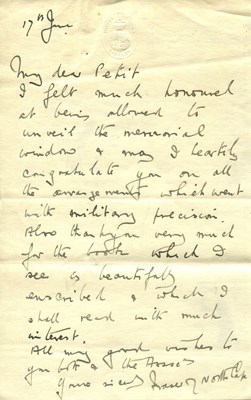 17th June
My dear Pettit
I felt much honoured
at being allowed to
unveil the memorial
window & may I heartily
congratulate you on all
the arrangements which went
with military precision.
Also thankyou very much
for the book which I
see is beautifully
enscribed & which I
shall read with much
interest.
All my good wishes to
you both & the Assoc
Yours sincerely Fraser of North Cape